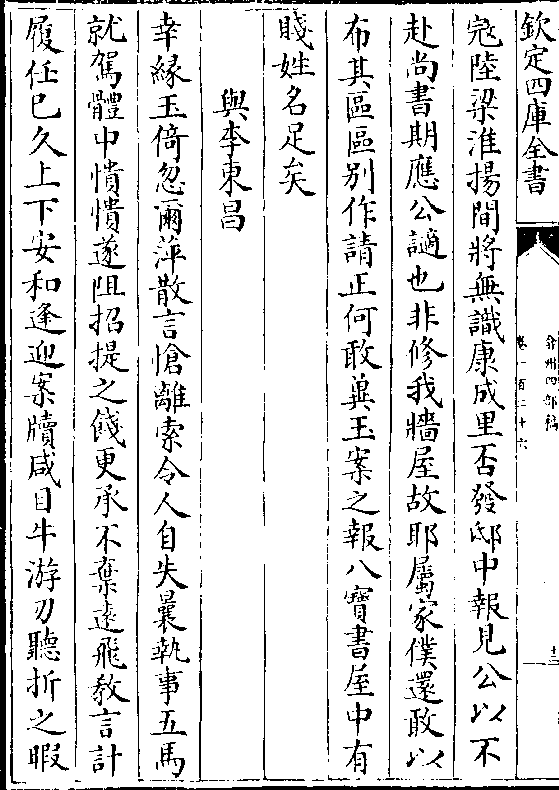 欽定四庫全書
弇州四部稿
卷一百二十六
十三
宼陸梁淮揚間將無識康成里否發邸中報見公以不
赴尚書期應公讁也非修我牆屋故耶屬家僕還敢以
布其區區别作請正何敢兾玉案之報八寶書屋中有
賤姓名足矣
與李東昌
幸緣玉倚忽爾萍散言愴離索令人自失曩執事五馬
就駕體中憒憒遂阻招提之餞更承不棄遠飛教言計
履任已久上下安和逢迎案牘咸目牛游刃聽折之暇